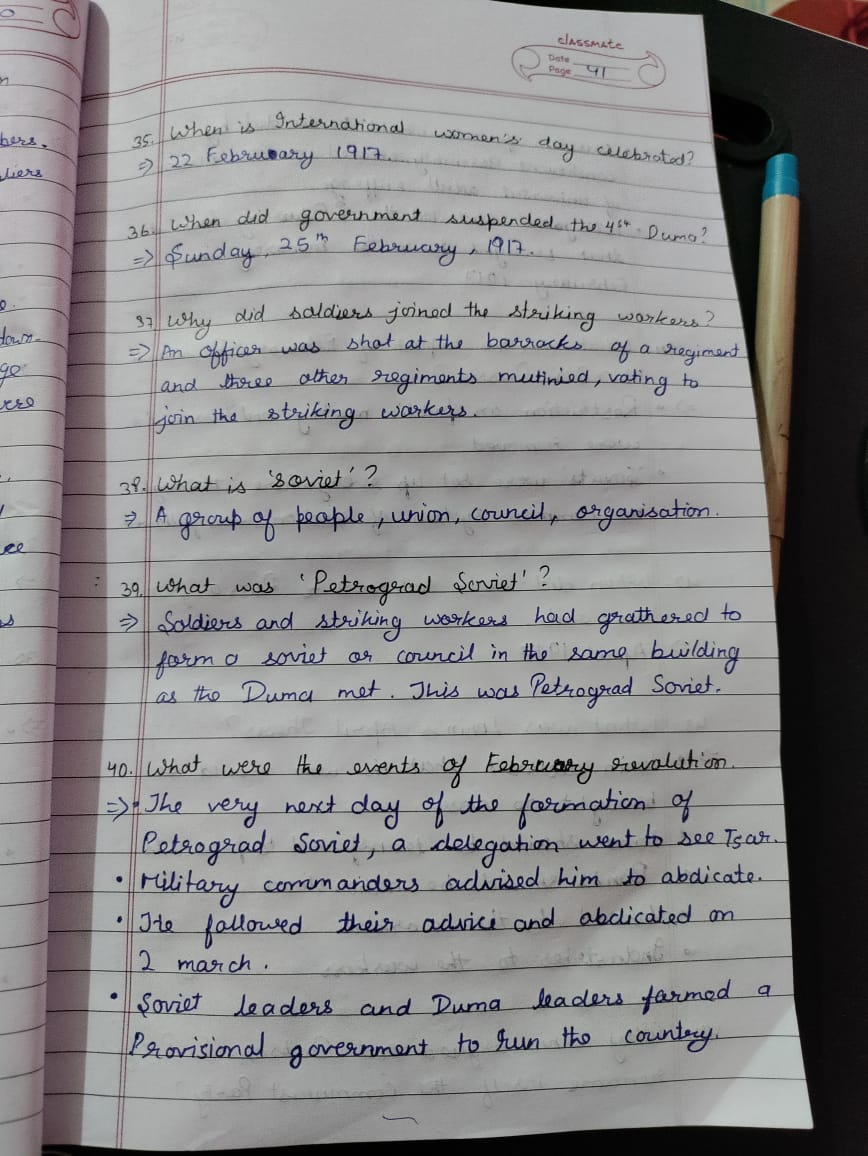 classmate
Date
Page 41
35. When is International women's day celebrated?
⇒ 22 February 1917.
36. When did government suspended the 4st Duma?
⇒ Sunday, 25th February, 1917.
37. Why did soldiers joined the striking workers?
⇒ An officer was shot at the barracks of a regiment
and three other regiments mutinied, voting to
join the striking workers.
38. What is 'soviet'?
⇒ A group of people, union, council, organisation.
39. What was 'Petrograd Soviet'?
⇒ Soldiers and striking workers had grathered to
form a soviet or council in the same building
as the Duma met. This was Petrograd Soviet.
40. What were the events of February revolution.
⇒ • The very next day of the formation of
Petrograd Soviet, a delegation went to see Tsar.
• Military commanders advised him to abdicate.
• He followed their advice and abdicated on
2 march.
• Soviet leaders and Duma leaders formed a
Provisional government to run the country.